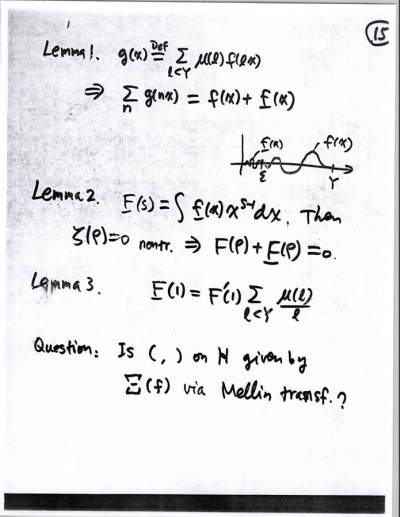 15
Lemma 1. g(x) Def= Σ_{l<Y} μ(l) f(lx)
⇒ Σ_n g(nx) = f(x) + f̲(x)
f̲(x) f(x)
ε Y
Lemma 2. F̲(s) = ∫ f̲(x) x^{s-1} dx, Then
ζ(ρ)=0 nontr. ⇒ F(ρ) + F̲(ρ) = 0.
Lemma 3. F̲(1) = F'(1) Σ_{l<Y} μ(l)/l
Question: Is ( , ) on H given by
Ξ(f) via Mellin transf.?